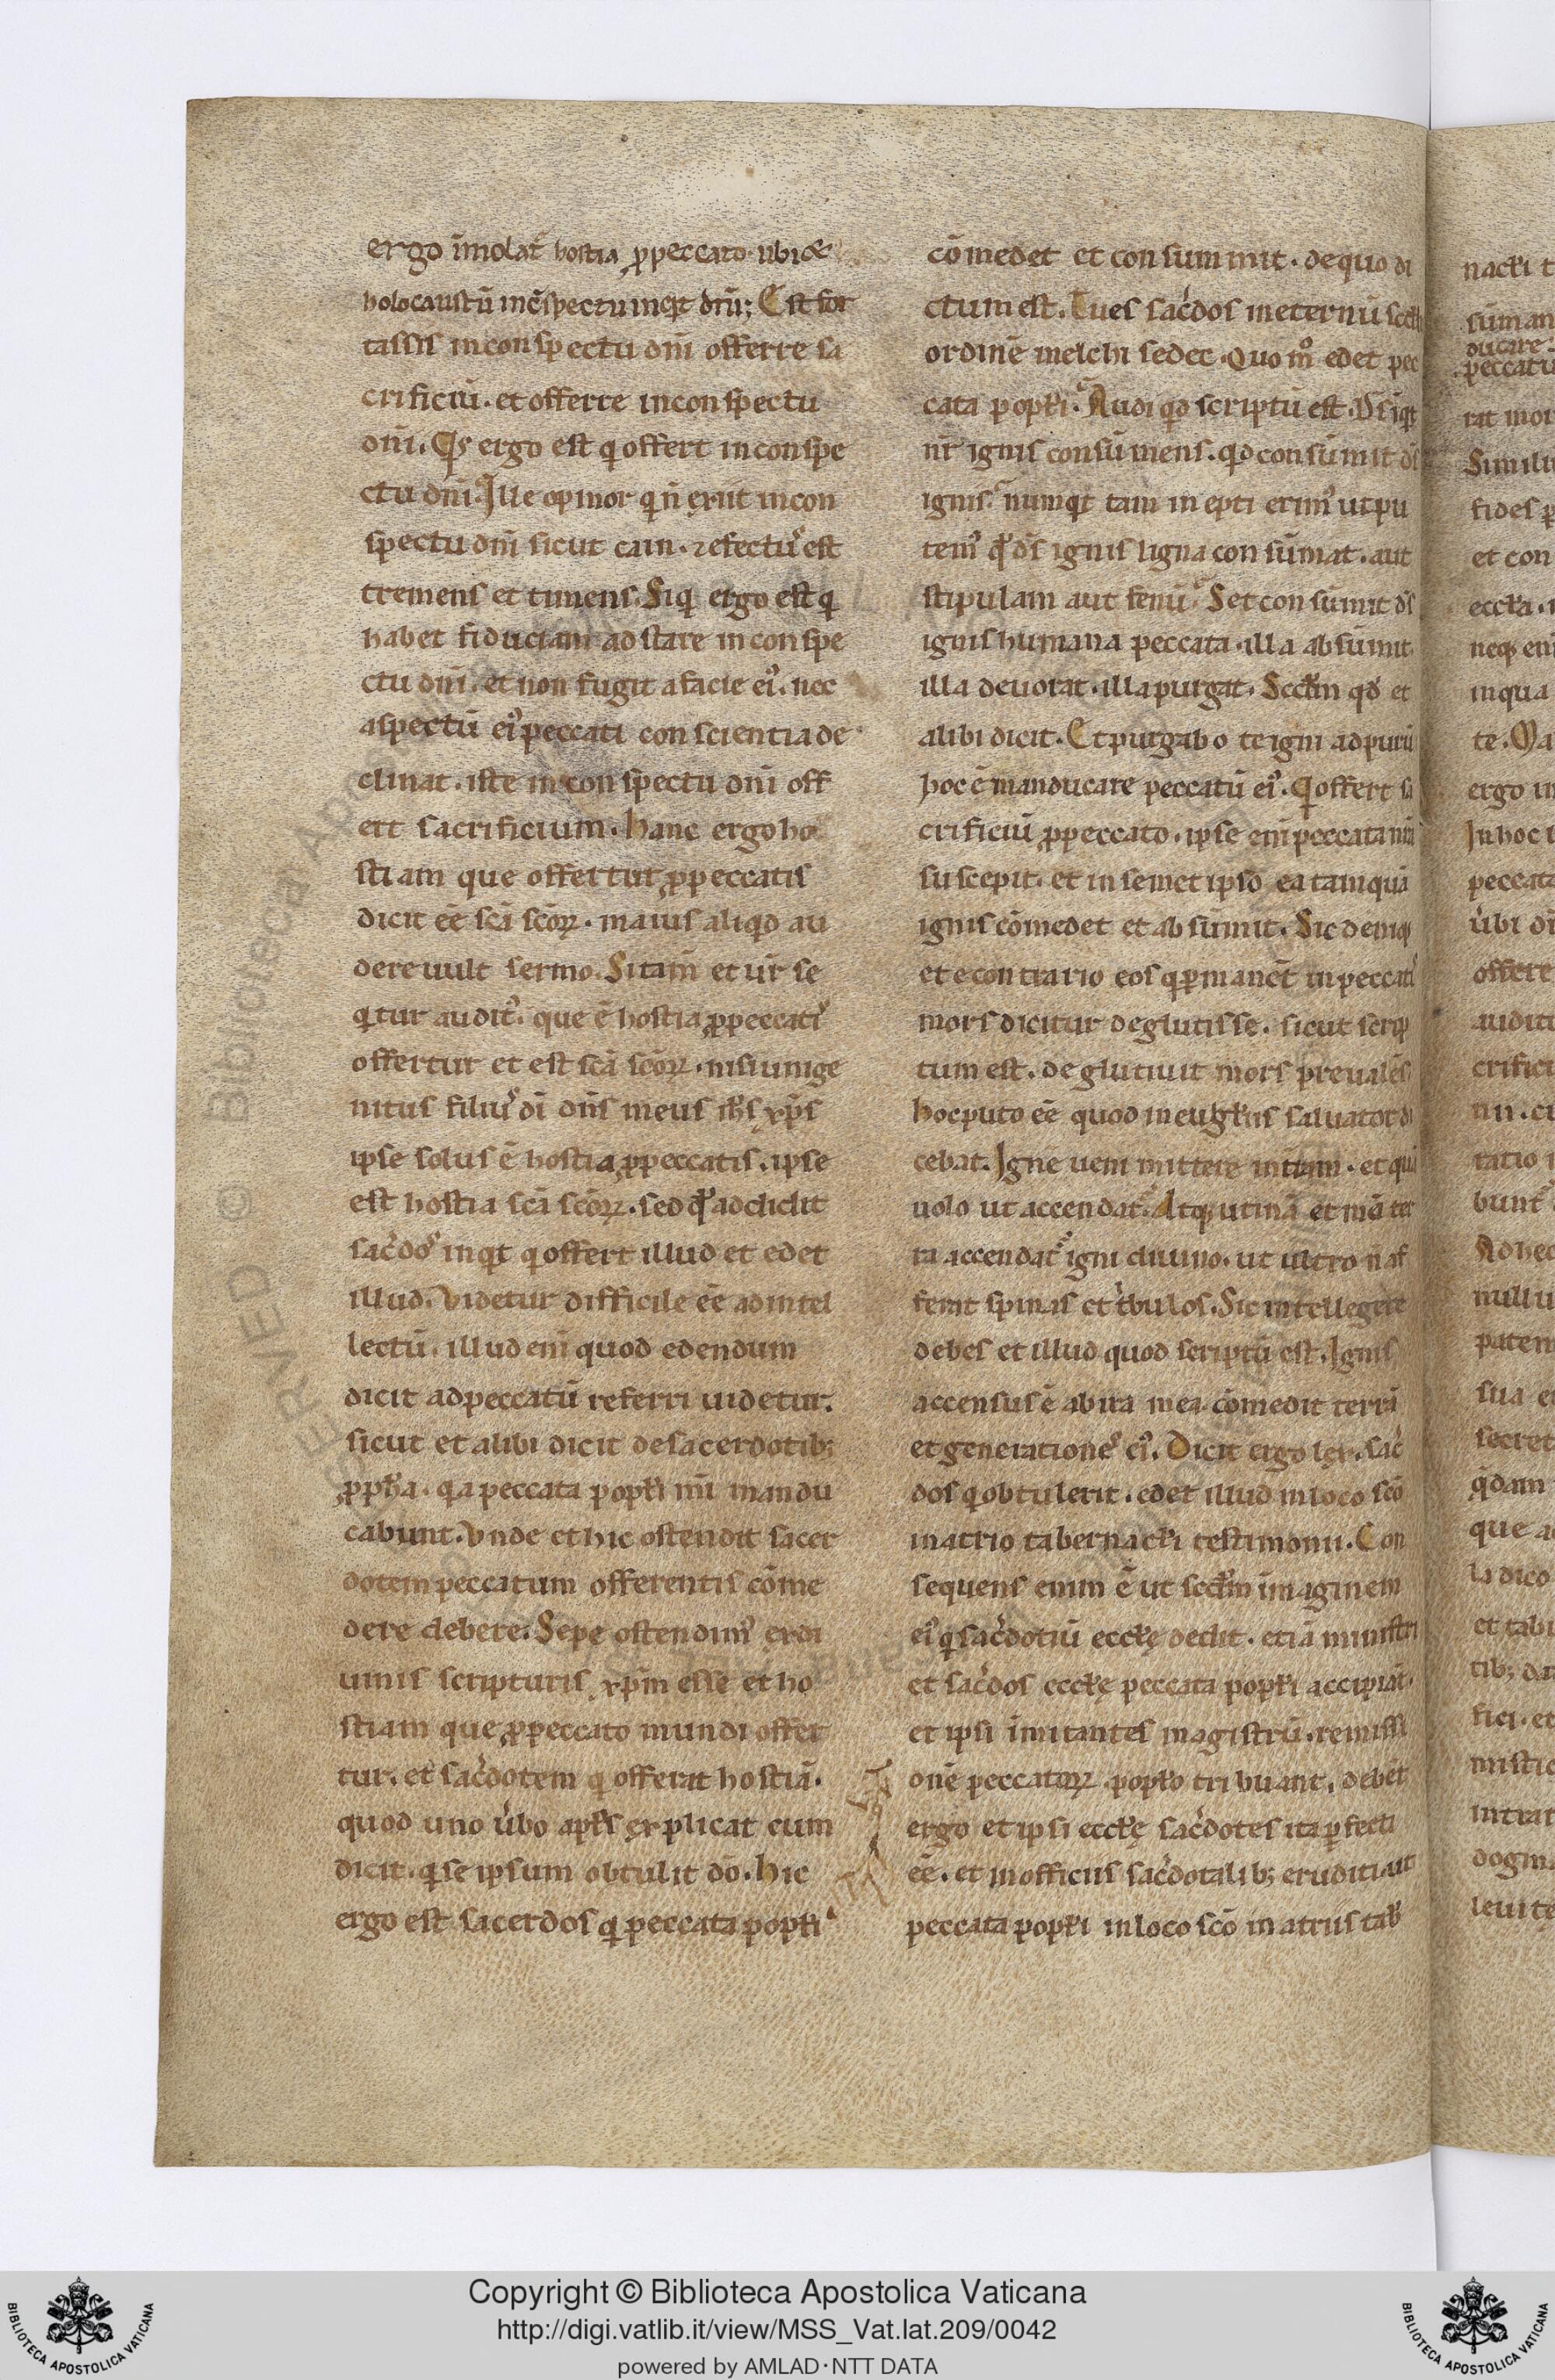 ergo īmolat᷑ hostia ꝓpeccato. ubi &
holocaustū incspectu inqt dn̄i; Est for
tassis inconspectu dn̄i offerre sa
crificiū. et offerre inconspectu
dn̄i. Qͥs ergo est qͥ offert inconspe
ctu dn̄i. Ille opinor qͥ n̄ exiit incon
spectu dn̄i sicut cain. ⁊ efectꝰ est
tremens et timens. Siqͥ ergo est qͥ
habet fiduciam adstare inconspe
ctu dn̄i. et non fugit afacie eiꝰ. nec
aspectū eiꝰ peccati conscientia de
clinat. iste inconspectu dn̄i off
ert sacrificium. Hanc ergo ho
stiam que offertur ꝓpeccatis
dicit eē scā scōꝝ. maius aliqd au
dere uult sermo. Si tam̄ et ur̄ se
qͥtur auditꝰ. que ē hostia ꝓpeccatiˢ
offertur et est scā scōꝝ. nisi unige
nitus filiuˢ dī dn̄s meus ih̄s xp̄s
ipse solus ē hostia ꝓpeccatis. ipse
est hostia scā scōꝝ. sed qͩ addidit
sac̄doˢ inqt qͥ offert illud et edet
illud. Videtur difficile eē adintel
lectū. illud enī quod edendum
dicit adpeccatū referri uidetur.
sicut et alibi dicit desacerdotibꝫ
ꝓph̄a. qͥa peccata popłi mī mandu
cabunt. Vnde et hic ostendit sacer
dotem peccatum offerentis cōme
dere debere. Sepe ostendimꝰ exdi
uinis scripturis xp̄m esse et ho
stiam que ꝓpeccato mundi offer
tur. et sac̄dotem qͥ offerat hostiā.
quod uno ūbo apłs explicat cum
dicit. qͥ se ipsum obtulit dō. Hic
ergo est sacerdos qͥ peccata popłi
cōmedet et consummit. de quo di
ctum est. Tu es sac̄dos ineternū scdm
ordinē melchisedec. Quo mͦ edet pec
cata popłi. Audi qd scriptū est. Ds̄ iqt
nr̄ ignis consūmens. qd consūmit ds̄
ignis. numqͥt tam inepti erimꝰ ut pu
temꝰ qͩ ds̄ ignis ligna consūmat. aut
stipulam aut fenū. Set consūmit ds̄
ignis humana peccata. illa absūmit.
illa deuorat. illa purgat. Scdm qd et
alibi dicit. Et purgabo te igni adpurū
hoc ē manducare peccatū eiꝰ. qͥ offert sa
crificiū ꝓpeccato. ipse enī peccata nr̄a
suscepit. et in semet ipso ea tamquā
ignis cōmedet et absūmit. Sic deniqꝫ
et econtrario eos qͥ ꝑmanēt inpeccatiˢ
mors dicitur deglutisse. sicut scrip
tum est. deglutiuit mors preualēs
hoc puto eē quod ineuḡłiis saluator di
cebat. Ignē ueni mittere intram. et quā
uolo ut accendat᷑. Atqꝫ utinā et m̄ ter
ra accendat᷑ igni diuino. ut ultro n̄ af
ferat spinas et tͥbulos. Sic intellegere
debes et illud quod scriptū est. Ignis
accensus ē abira mea. cōmedit terrā
et generationeˢ eiꝰ. Dicit ergo lex. sac̄
dos qͥ obtulerit. edet illud inloco scō
inatrio tabernacłi testimonii. Con
sequens enim ē ut scdm imaginem
eiꝰ qͥ sac̄dotiū eccłę dedit. etiā ministri
et sac̄dos eccłę peccata popłi accipiāt.
et ipsi īmitantes magistrū. remissi
onē peccatoꝝ popło tribuant. debēt
ergo et ipsi eccłę sac̄dotes ita ꝑfecti
eē. et inofficiis sac̄dotalibꝫ eruditi. ut
peccata popłi inloco scō inatriis tab̄
nacłi t
sūman
ducare.
peccatu
rat mor
Simili
fides p
et con
eccła.
neqꝫ enī
inqua
te. Ma
ergo in
In hoc
peccata
ubi
offere
auditi
crifici
bunt
Ad hec
nullu
patern
sua e
secret
qͥdam
que a
la dico
et tab
tibꝫ da
fici. et
mistic
intrat
dogm
leuite
Copyright © Biblioteca Apostolica Vaticana
http://digi.vatlib.it/view/MSS_Vat.lat.209/0042
powered by AMLAD·NTT DATA
BIBLIOTECA APOSTOLICA VATICANA
BIBLIOTECA APOSTOLICA VATICANA